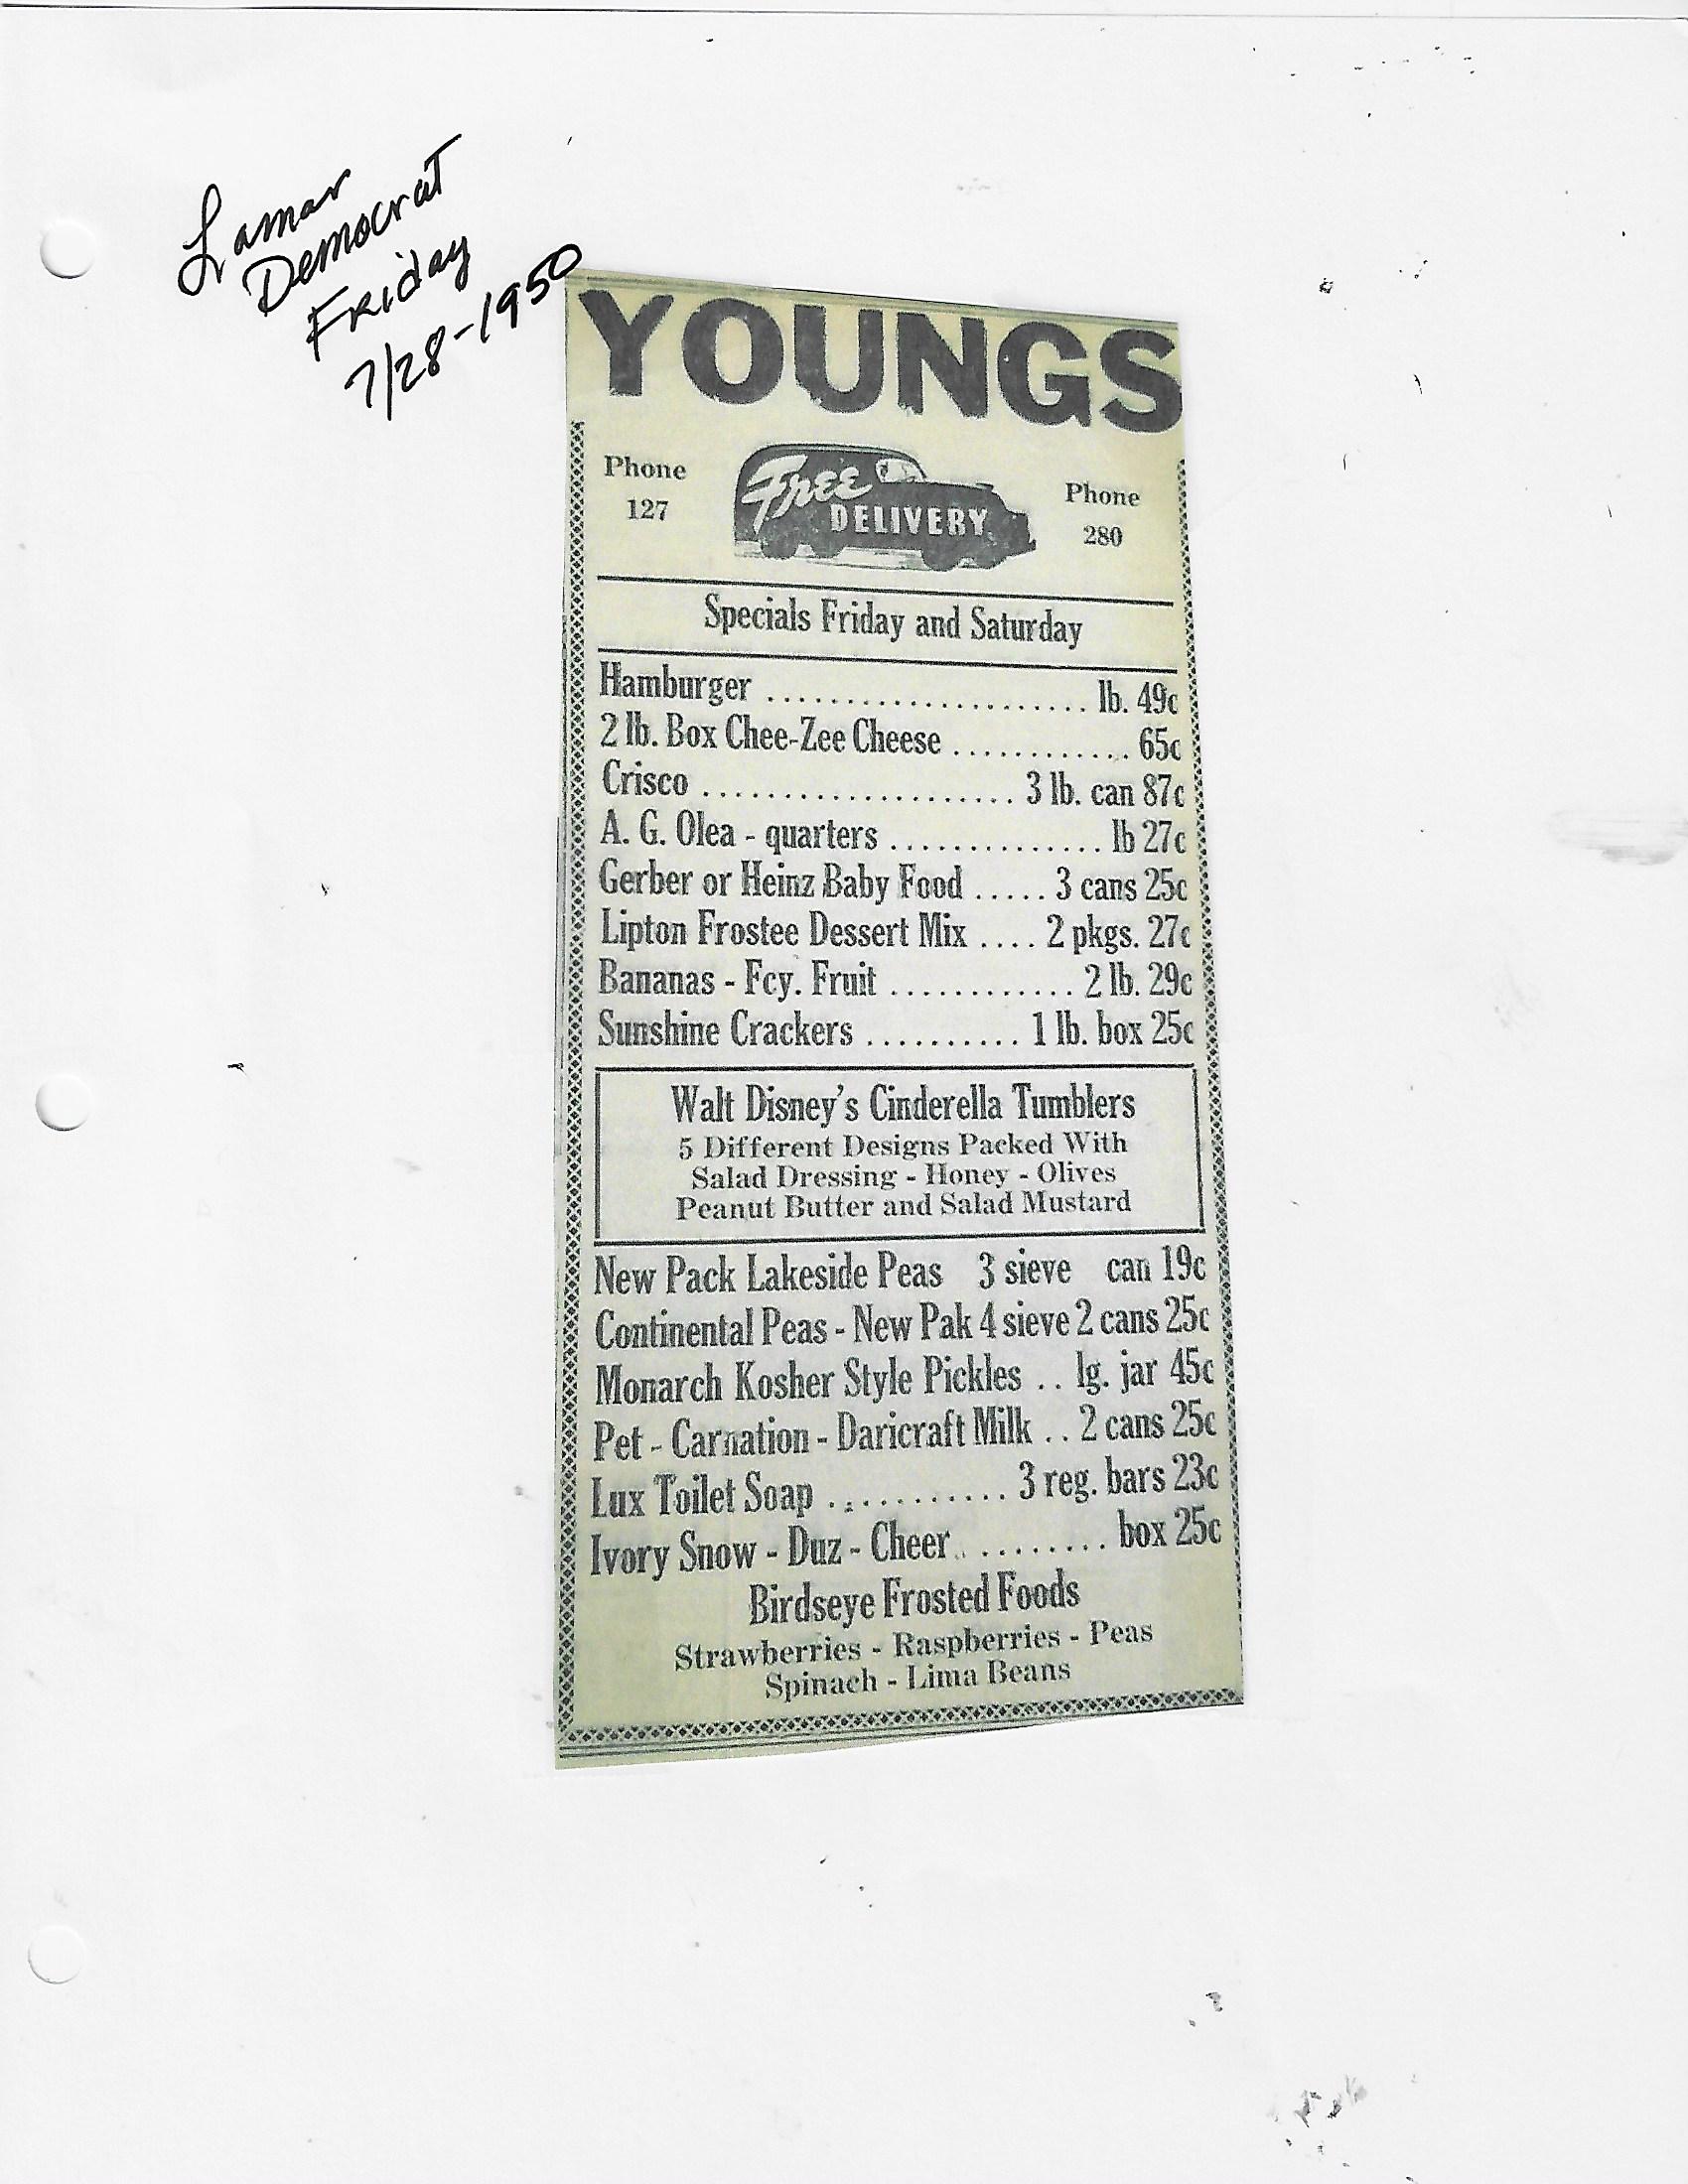 Lamar
Democrat
Friday
7/28-1950
YOUNGS
Phone
127
Free
DELIVERY
Phone
280
Specials Friday and Saturday
Hamburger ...................... lb. 49c
2 lb. Box Chee-Zee Cheese ............ 65c
Crisco .................... 3 lb. can 87c
A. G. Olea - quarters .............. lb 27c
Gerber or Heinz Baby Food ..... 3 cans 25c
Lipton Frostee Dessert Mix .... 2 pkgs. 27c
Bananas - Fcy. Fruit ............ 2 lb. 29c
Sunshine Crackers .......... 1 lb. box 25c
Walt Disney's Cinderella Tumblers
5 Different Designs Packed With
Salad Dressing - Honey - Olives
Peanut Butter and Salad Mustard
New Pack Lakeside Peas 3 sieve can 19c
Continental Peas - New Pak 4 sieve 2 cans 25c
Monarch Kosher Style Pickles .. lg. jar 45c
Pet - Carnation - Daricraft Milk .. 2 cans 25c
Lux Toilet Soap ........... 3 reg. bars 23c
Ivory Snow - Duz - Cheer ......... box 25c
Birdseye Frosted Foods
Strawberries - Raspberries - Peas
Spinach - Lima Beans